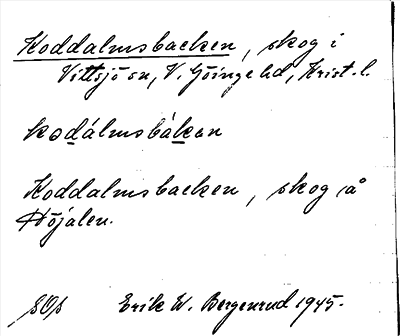 Koddalmsbacken, skog i
Vittsjö sn, V. Göinge hd, Krist. l.
kodálmsbákan
Koddalmsbacken, skog å
Höjalen.
Erik W. Bergenrud 1945.